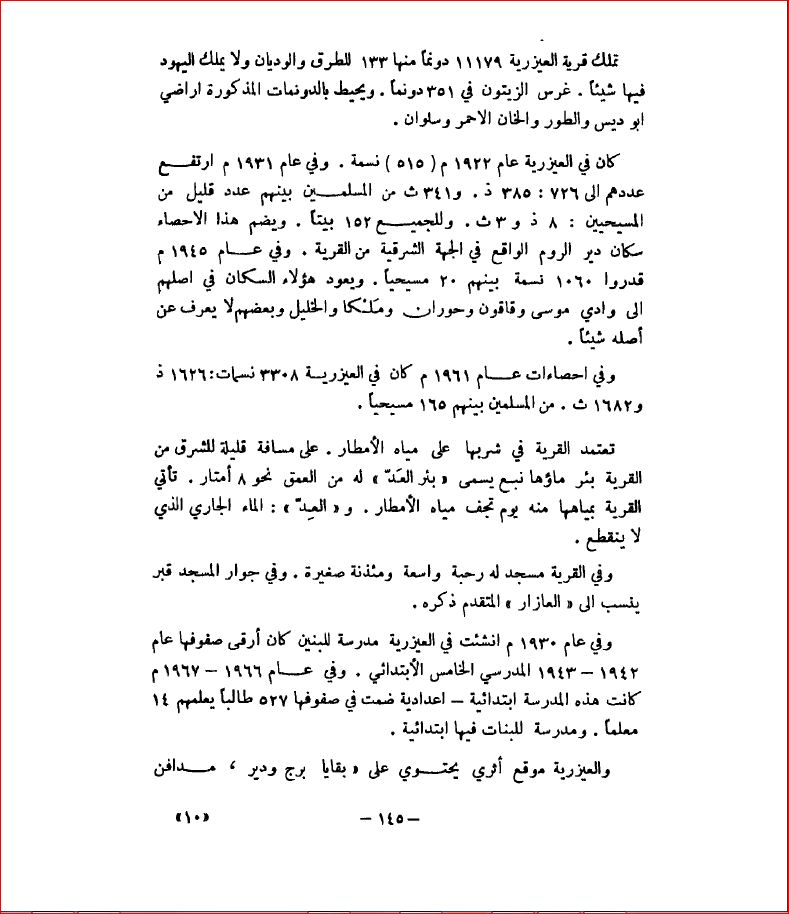 تملك قرية العيزرية ١١١٧٩ دونماً منها ١٣٣ للطرق والوديان ولا يملك اليهود
فيها شيئاً . غرس الزيتون في ٣٥١ دونماً . ويحيط بالدونمات المذكورة اراضي
ابو ديس والطور والخان الاحمر وسلوان .
كان في العيزرية عام ١٩٢٢ م ( ٥١٥ ) نسمة . وفي عام ١٩٣١ م ارتفـــع
عددهم الى ٧٢٦ : ٣٨٥ ذ . و٣٤١ ث من المسلمـــين بينهم عدد قليل من
المسيحيين : ٨ ذ و ٣ ث . وللجميـــع ١٥٢ بيتاً . ويضم هذا الاحصاء
سكان دير الروم الواقع في الجهة الشرقية من القرية . وفي عـــام ١٩٤٥ م
قدروا ١٠٦٠ نسمة بينهم ٢٠ مسيحياً . ويعود هؤلاء السكان في اصلهم
الى وادي موسى وقاقون وحوران ومَلَـْكا والخليل وبعضهم لا يعرف عن
أصله شيئاً .
وفي احصاءات عـــام ١٩٦١ م كان في العيزريـــة ٣٣٠٨ نسمات : ١٦٢٦ ذ
و ١٦٨٢ ث . من المسلمين بينهم ١٦٥ مسيحياً .
تعتمد القرية في شربها على مياه الأمطار . على مسافة قليلة للشرق من
القرية بئر ماؤها نبع يسمى « بئر العَدّ » له من العمق نحو ٨ أمتار . تأتي
القرية بمياهها منه يوم تجف مياه الأمطار . و « العِدّ » : الماء الجاري الذي
لا ينقطع .
وفي القرية مسجد له رحبة واسعة ومئذنة صغيرة . وفي جوار المسجد قبر
ينسب الى « العازار » المتقدم ذكره .
وفي عام ١٩٣٠ م انشئت في العيزرية مدرسة للبنين كان أرقى صفوفها عام
١٩٤٢ – ١٩٤٣ المدرسي الخامس الأبتدائي . وفي عـــام ١٩٦٦ – ١٩٦٧ م
كانت هذه المدرسة ابتدائية – اعدادية ضمت في صفوفها ٥٢٧ طالباً يعلمهم ١٤
معلماً . ومدرسة للبنات فيها ابتدائية .
والعيزرية موقع أثري يحتـــوي على « بقايا برج ودير ، مـــدافن
– ١٤٥ –
«١٠»